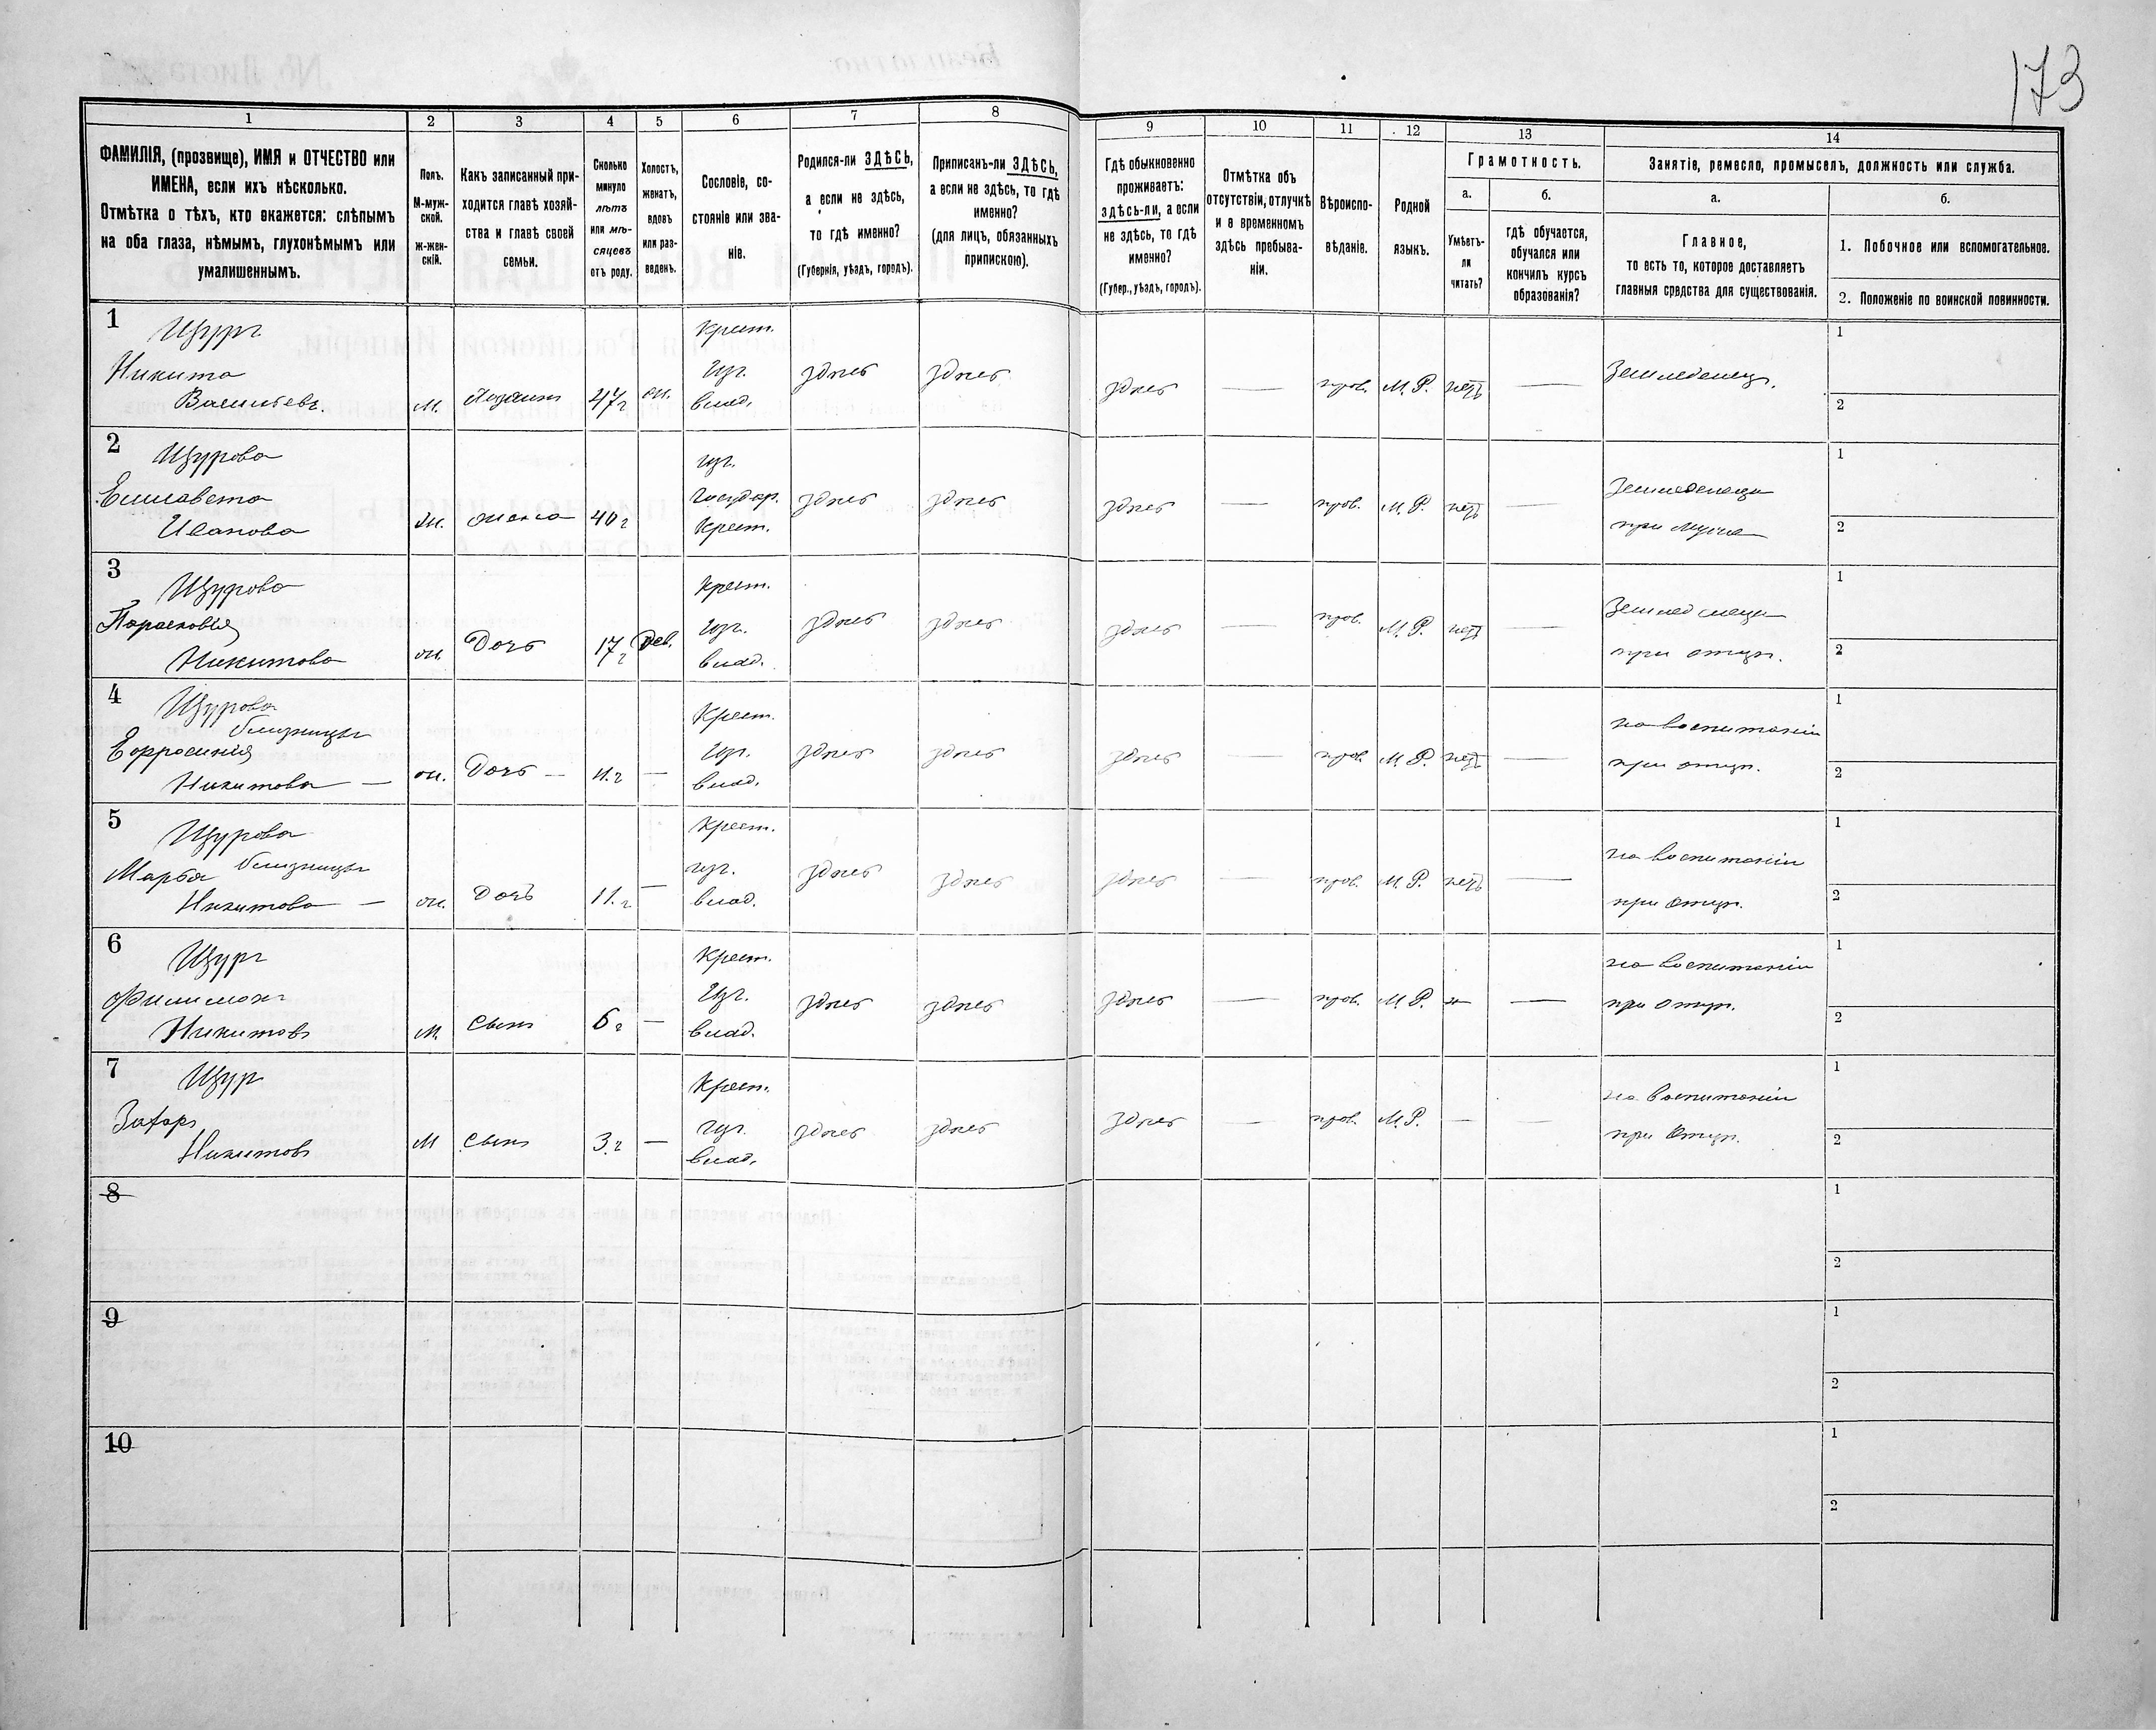 173
1 2 3 4 5 6 7 8 9 10 11 12 13 14
ФАМИЛІЯ, (прозвище), ИМЯ и ОТЧЕСТВО или
ИМЕНА, если ихъ нѣсколько.
Отмѣтка о тѣхъ, кто окажется: слѣпымъ
на оба глаза, нѣмымъ, глухонѣмымъ или
умалишеннымъ.
Полъ.
М-муж-
ской.
Ж-жен-
скій.
Какъ записанный при-
ходится главѣ хозяй-
ства и главѣ своей
семьи.
Сколько
минуло
лѣтъ
или мѣ-
сяцевъ
отъ роду.
Холостъ,
женатъ,
вдовъ
или раз-
веденъ.
Сословіе, со-
стояніе или зва-
ніе.
Родился-ли ЗДѢСЬ,
а если не здѣсь,
то гдѣ именно?
(Губернія, уѣздъ, городъ).
Приписанъ-ли ЗДѢСЬ,
а если не здѣсь, то гдѣ
именно?
(для лицъ, обязанныхъ
припискою).
Гдѣ обыкновенно
проживаетъ:
здѣсь-ли, а если
не здѣсь, то гдѣ
именно?
(Губер., уѣздъ, городъ).
Отмѣтка объ
отсутствіи, отлучкѣ
и о временномъ
здѣсь пребыва-
ніи.
Вѣроиспо-
вѣданіе.
Родной
языкъ.
Грамотность.
а.
Умѣетъ-
ли
читать?
б.
гдѣ обучается,
обучался или
кончилъ курсъ
образованія?
Занятіе, ремесло, промыселъ, должность или служба.
а.
Главное,
то есть то, которое доставляетъ
главныя срѣдства для существованія.
б.
1. Побочное или вспомогательное.
2. Положеніе по воинской повинности.
1
Щуръ
Никита
Васильевъ
м. Хозяинъ 47 г ж.
Крест.
влад.
здѣсь здѣсь здѣсь — прав. М. Р. нетъ —
Земледелецъ.
1
2
2
Щурова
Елисавета
Иванова
ж. жена 40 г
Государ.
Крест.
здѣсь здѣсь здѣсь — прав. М. Р. нетъ —
при муже
1
2
3
Щурова
Парасковія
Никитова
ж. Дочь 17 г Дев.
Крест.
влад.
здѣсь здѣсь здѣсь — прав. М. Р. нетъ —
при отцу.
1
2
4
Щурова
близницы
Ефросинія
Никитова —
ж. Дочь — 11. г —
Крест.
влад.
здѣсь здѣсь здѣсь — прав. М. Р. нетъ —
на воспитаніи
при отцу.
1
2
5
Щурова
близницы
Марѳа
Никитова —
ж. дочь 11. г —
Крест.
влад.
здѣсь здѣсь здѣсь — прав. М. Р. нетъ —
на воспитаніи
при отцу.
1
2
6
Щуръ
Филимонъ
Никитовъ
м. сынъ 6 г —
Крест.
влад.
здѣсь здѣсь здѣсь — прав. М. Р. —
на воспитаніи
при отцу.
1
2
7
Щур
Захаръ
Никитовъ
м сынъ 3. г —
Крест.
влад.
здѣсь здѣсь здѣсь — прав. М. Р. — —
на воспитаніи
при отцу.
1
2
8
1
2
9
1
2
10
1
2